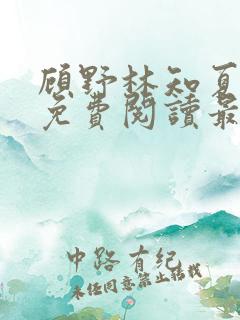 顾野林知夏
免費閱讀最
中路有纪
未经同意禁止转载